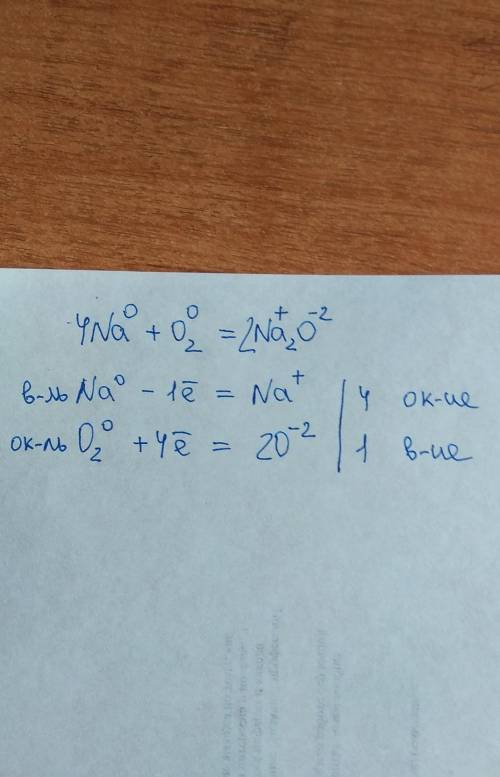 4Na⁰ + O₂⁰ = 2Na₂⁺O⁻²
в-ль Na⁰ - 1ē = Na⁺ | 4 ок-ие
ок-ль O₂⁰ + 4ē = 2O⁻² | 1 в-ие